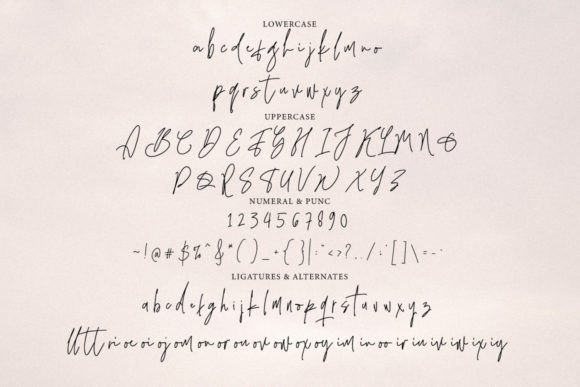 LOWERCASE
a b c d e f g h i j k l m n o
p q r s t u v w x y z
UPPERCASE
A B C D E F G H I J K L M N O
P Q R S T U V W X Y Z
NUMERAL & PUNC
1 2 3 4 5 6 7 8 9 0
~ ! @ # $ % ^ & * ( ) _ + { } | : " < > ? . . / ; ' [ ] \ = - `
LIGATURES & ALTERNATES
a b c d e f g h i j k l m n o p q r s t u v w x y z
ri oe oi oj om on or ou ov ow ox oy im in oo ir iu iv iw ix iy